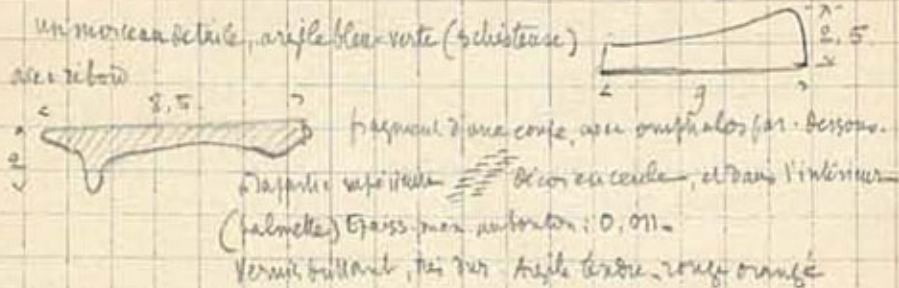 un morceau de tuile, argile bleu-verte (schisteuse)
avec rebord
2,5
9
8,5
2
fragment d'une coupe, avec omphalos par-dessous.
La partie supérieure décor en cercle, et dans l'intérieur
(palmette) Epaiss. max au bouton : 0,011.
Vernis brillant, très dur. Argile tendre, rouge orangé